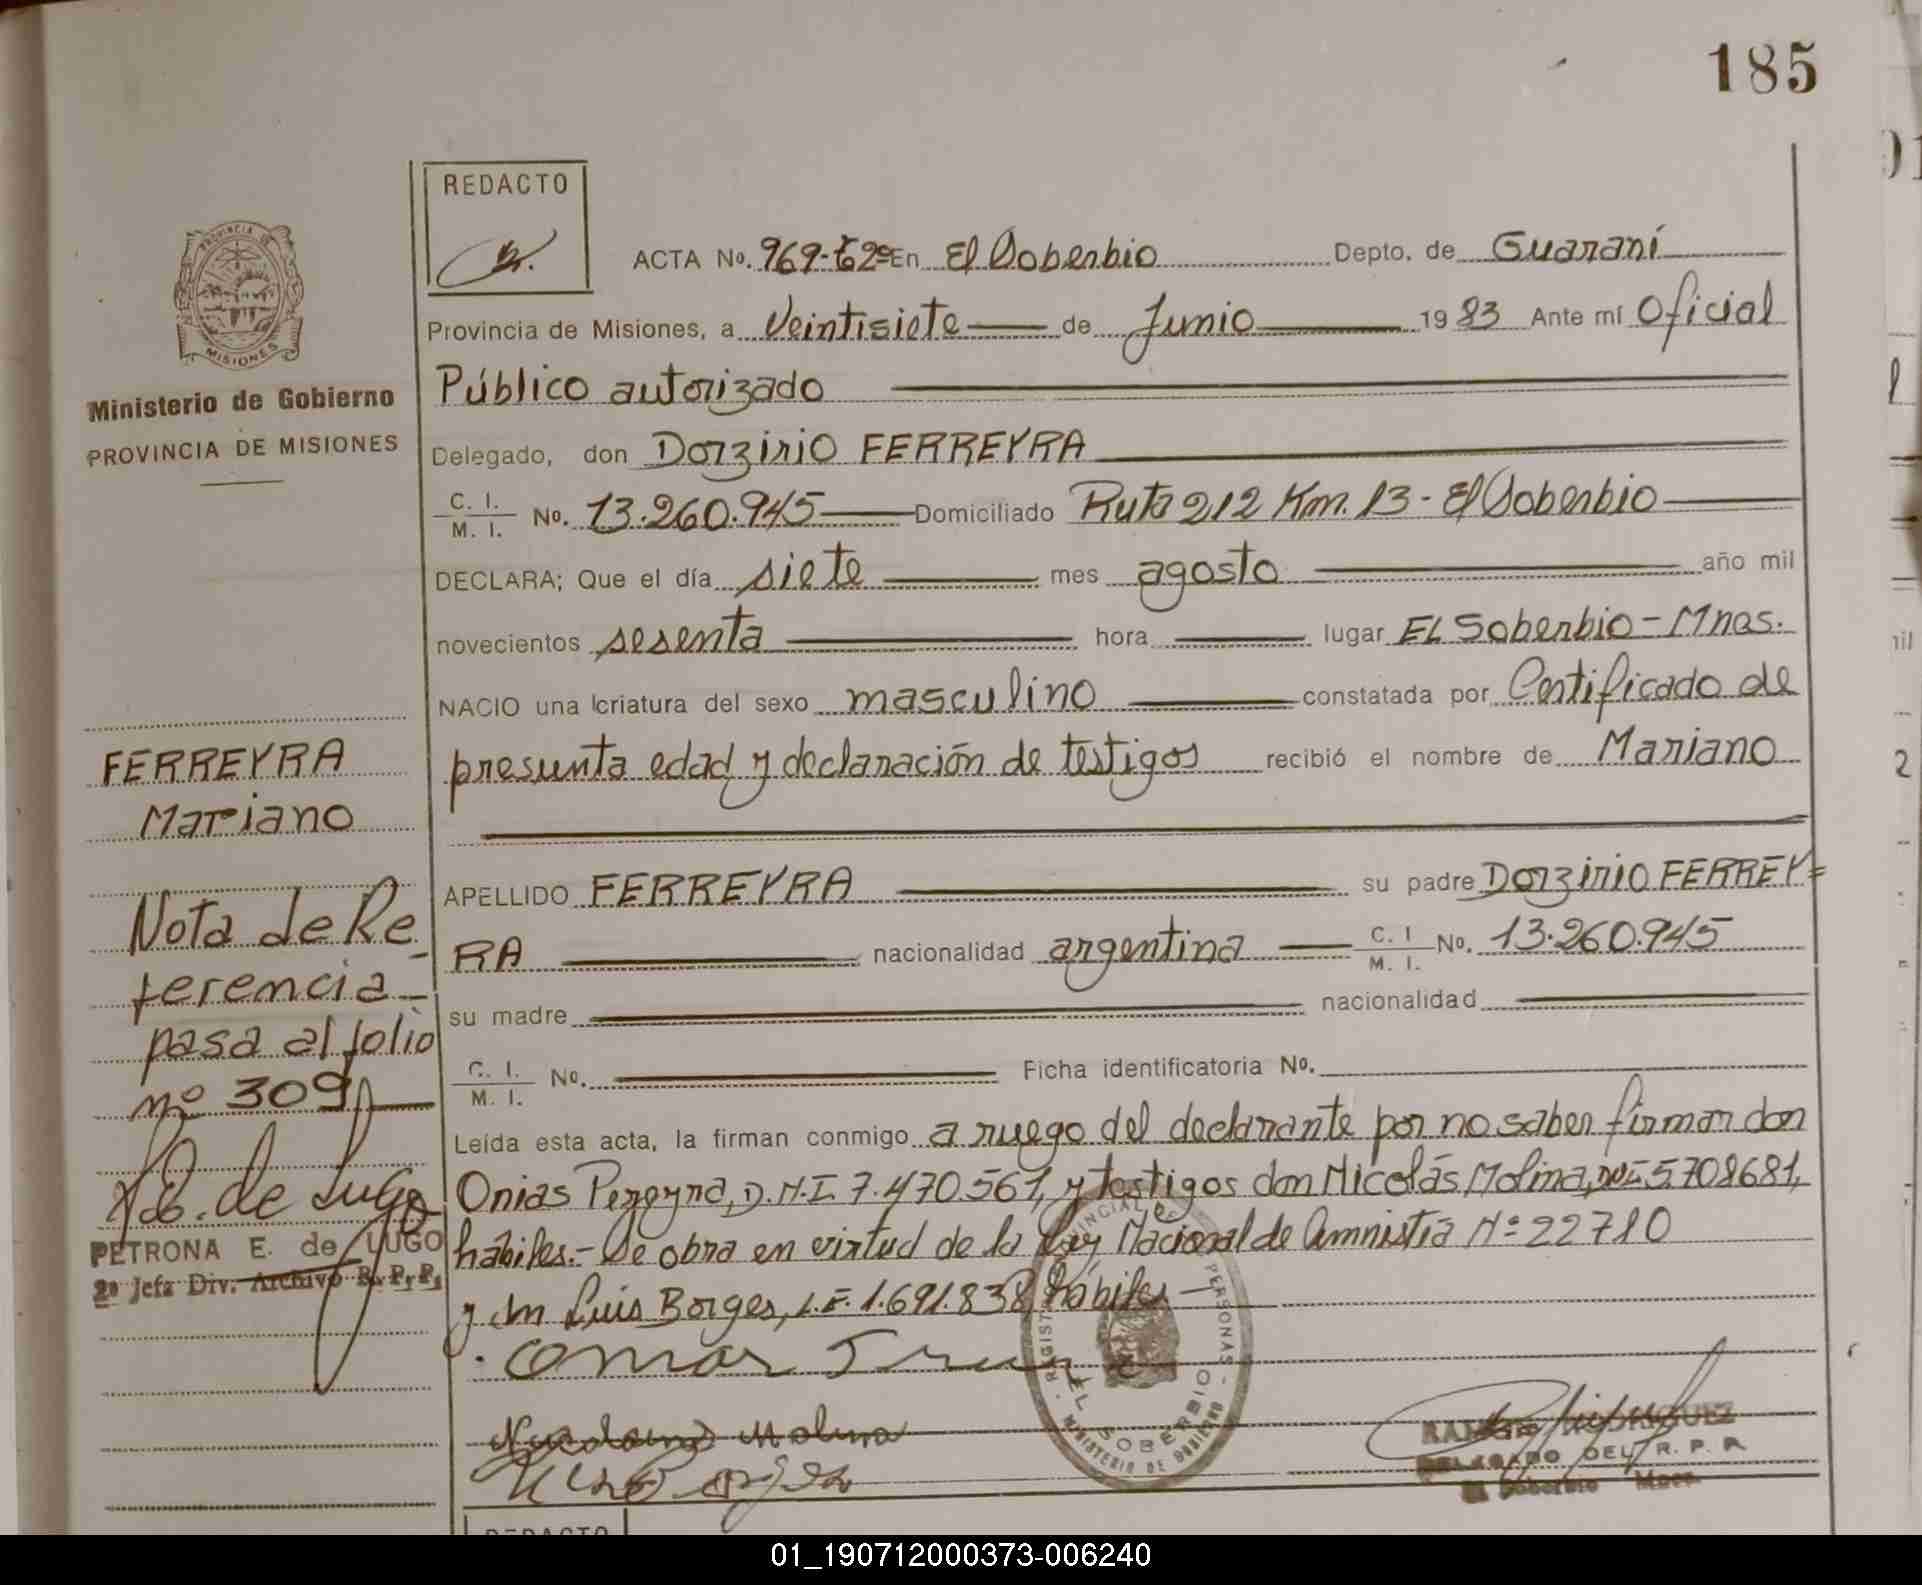 185
REDACTO
PROVINCIA DE
MISIONES
Ministerio de Gobierno
PROVINCIA DE MISIONES
ACTA No. 969-t2º En El Soberbio Depto. de Guaraní
Provincia de Misiones, a Veintisiete de Junio 1983 Ante mí Oficial
Público autorizado
Delegado, don Dorzirio FERREYRA
C. I.
M. I. No. 13.260.945 Domiciliado Ruta 212 Km. 13 - El Soberbio
DECLARA; Que el día siete mes agosto año mil
novecientos sesenta hora lugar EL Soberbio - Mnes.
NACIO una criatura del sexo masculino constatada por Certificado de
presunta edad y declaración de testigos recibió el nombre de Mariano
APELLIDO FERREYRA su padre Dorzirio FERREY=
RA nacionalidad argentina C. I
M. I. No. 13.260.945
su madre nacionalidad
C. I.
M. I. No. Ficha identificatoria No.
Leída esta acta, la firman conmigo a ruego del declarante por no saber firmar don
Onias Pereyra, D.N.I. 7.470.561, y testigos don Nicolás Molina, DNI 5.708681,
hábiles.- Se obra en virtud de la Ley Nacional de Amnistía Nº 22710
y don Luis Borges, L.E. 1.691.838, hábiles -
FERREYRA
Mariano
Nota de Re-
ferencia
pasa al folio
nº 309
PETRONA E. de LUGO
2º Jefa Div. Archivo R. P. P.
PERSONAS
EL SOBERBIO
MINISTERIO DE GOBIERNO
Molina
DELEGADO DEL R. P. P.
El Soberbio
REDACTO
01_190712000373-006240